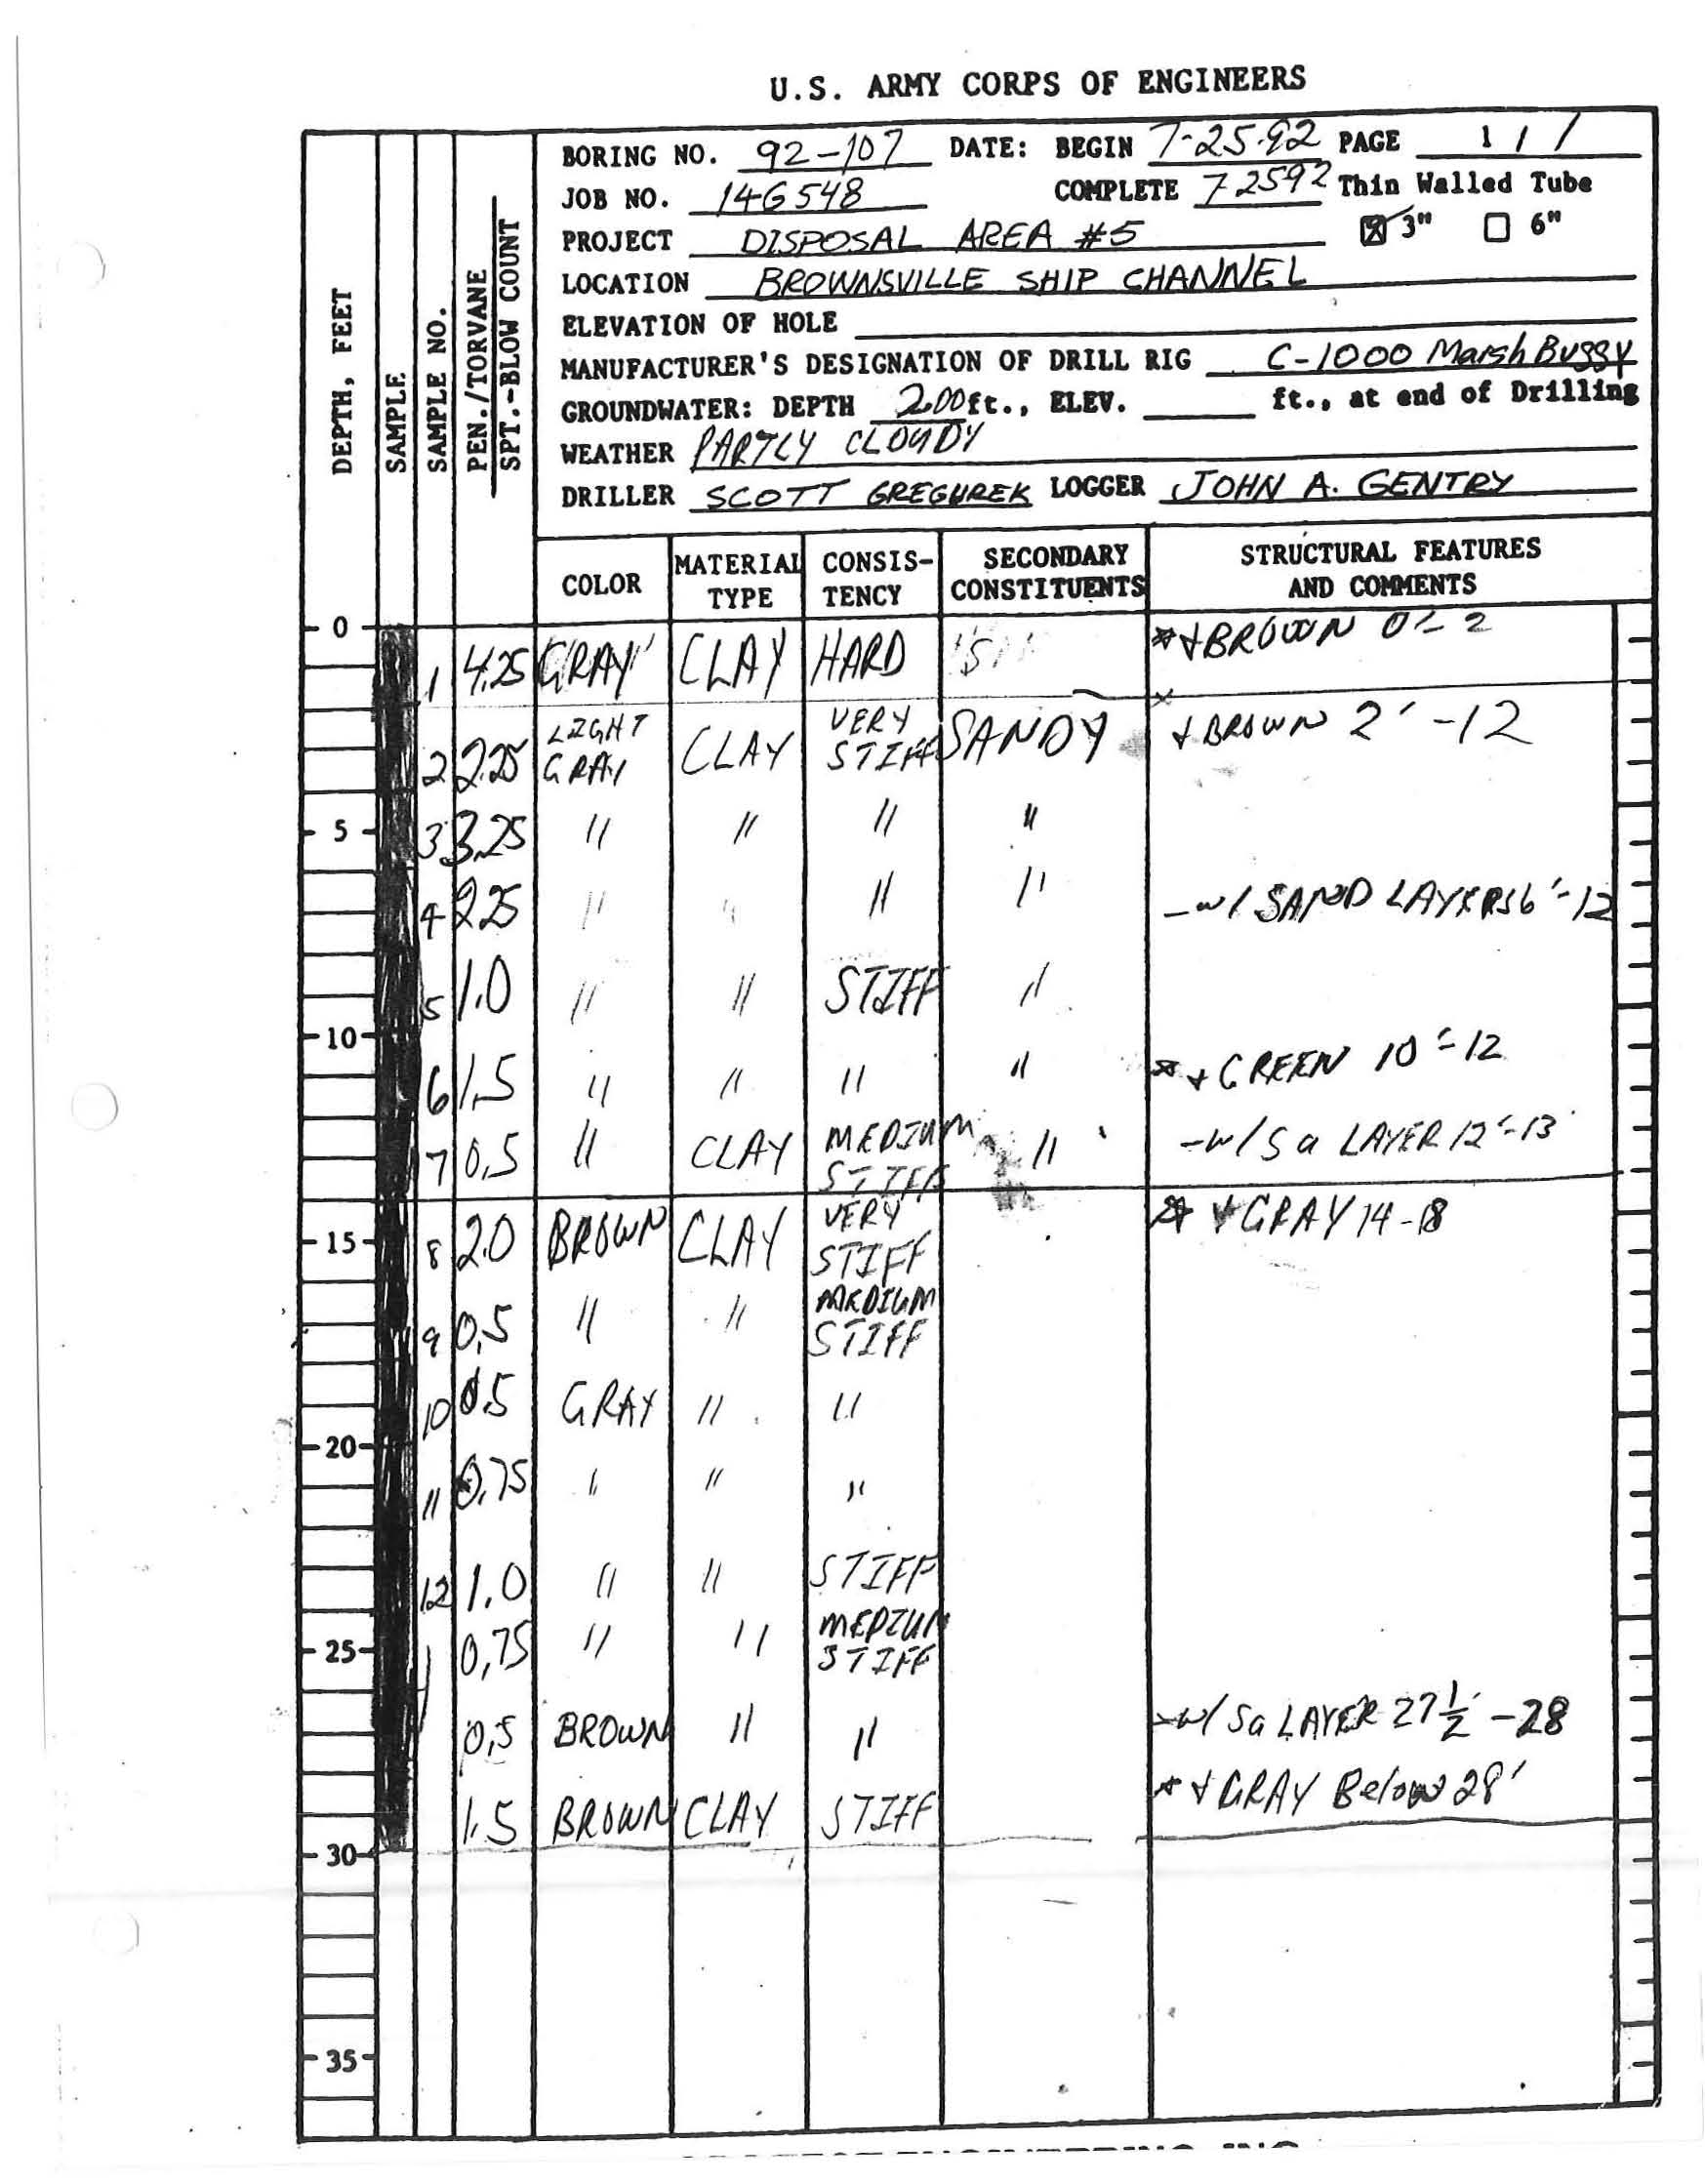 U.S. ARMY CORPS OF ENGINEERS
BORING NO. 92-107 DATE: BEGIN 7-25-92 PAGE 1 / 1
JOB NO. 14G548 COMPLETE 7-2592 Thin Walled Tube
PROJECT DISPOSAL AREA #5 ☒ 3" ☐ 6"
LOCATION BROWNSVILLE SHIP CHANNEL
ELEVATION OF HOLE
MANUFACTURER'S DESIGNATION OF DRILL RIG C-1000 Marsh Buggy
GROUNDWATER: DEPTH 2.00 ft., ELEV. ft., at end of Drilling
WEATHER PARTLY CLOUDY
DRILLER SCOTT GREGUREK LOGGER JOHN A. GENTRY
DEPTH, FEET
SAMPLE
SAMPLE NO.
PEN./TORVANE
SPT.-BLOW COUNT
COLOR
MATERIAL TYPE
CONSIS-TENCY
SECONDARY CONSTITUENTS
STRUCTURAL FEATURES AND COMMENTS
0
1 4.25 GRAY CLAY HARD *+BROWN 0'-2
2 2.25 LIGHT GRAY CLAY VERY STIFF SANDY +BROWN 2'-12
5 3 3.25 " " " "
4 2.25 " " " " -w/ SAND LAYERS 6'-12
5 1.0 " " STIFF "
10
6 1.5 " " " " *+GREEN 10'-12
7 0.5 " CLAY MEDIUM STIFF " -w/ Sa LAYER 12'-13
15 8 2.0 BROWN CLAY VERY STIFF * +GRAY 14-18
9 0.5 " " MEDIUM STIFF
10 0.5 GRAY " "
20
11 0.75 " " "
12 1.0 " " STIFF
25 0.75 " " MEDIUM STIFF
0.5 BROWN " " -w/ Sa LAYER 27½'-28
1.5 BROWN CLAY STIFF *+GRAY Below 28'
30
35